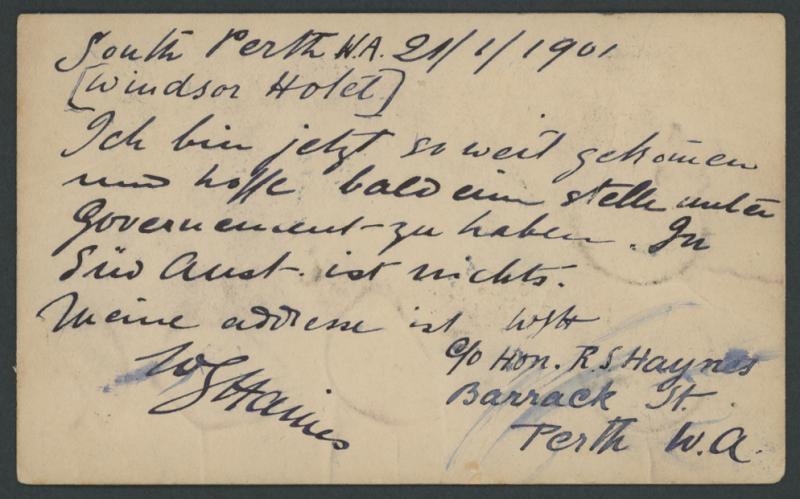 South Perth W.A. 21/1/1901
[Windsor Hotel]
Ich bin jetzt so weit gekom̄en
und hoffe bald ein stelle unter
Governement zu haben. In
Süd Aust. ist nichts.
Meine addresse ist WSH
c/o Hon. R.S Haynes
WSHaines
Barrack St.
Perth W.A.